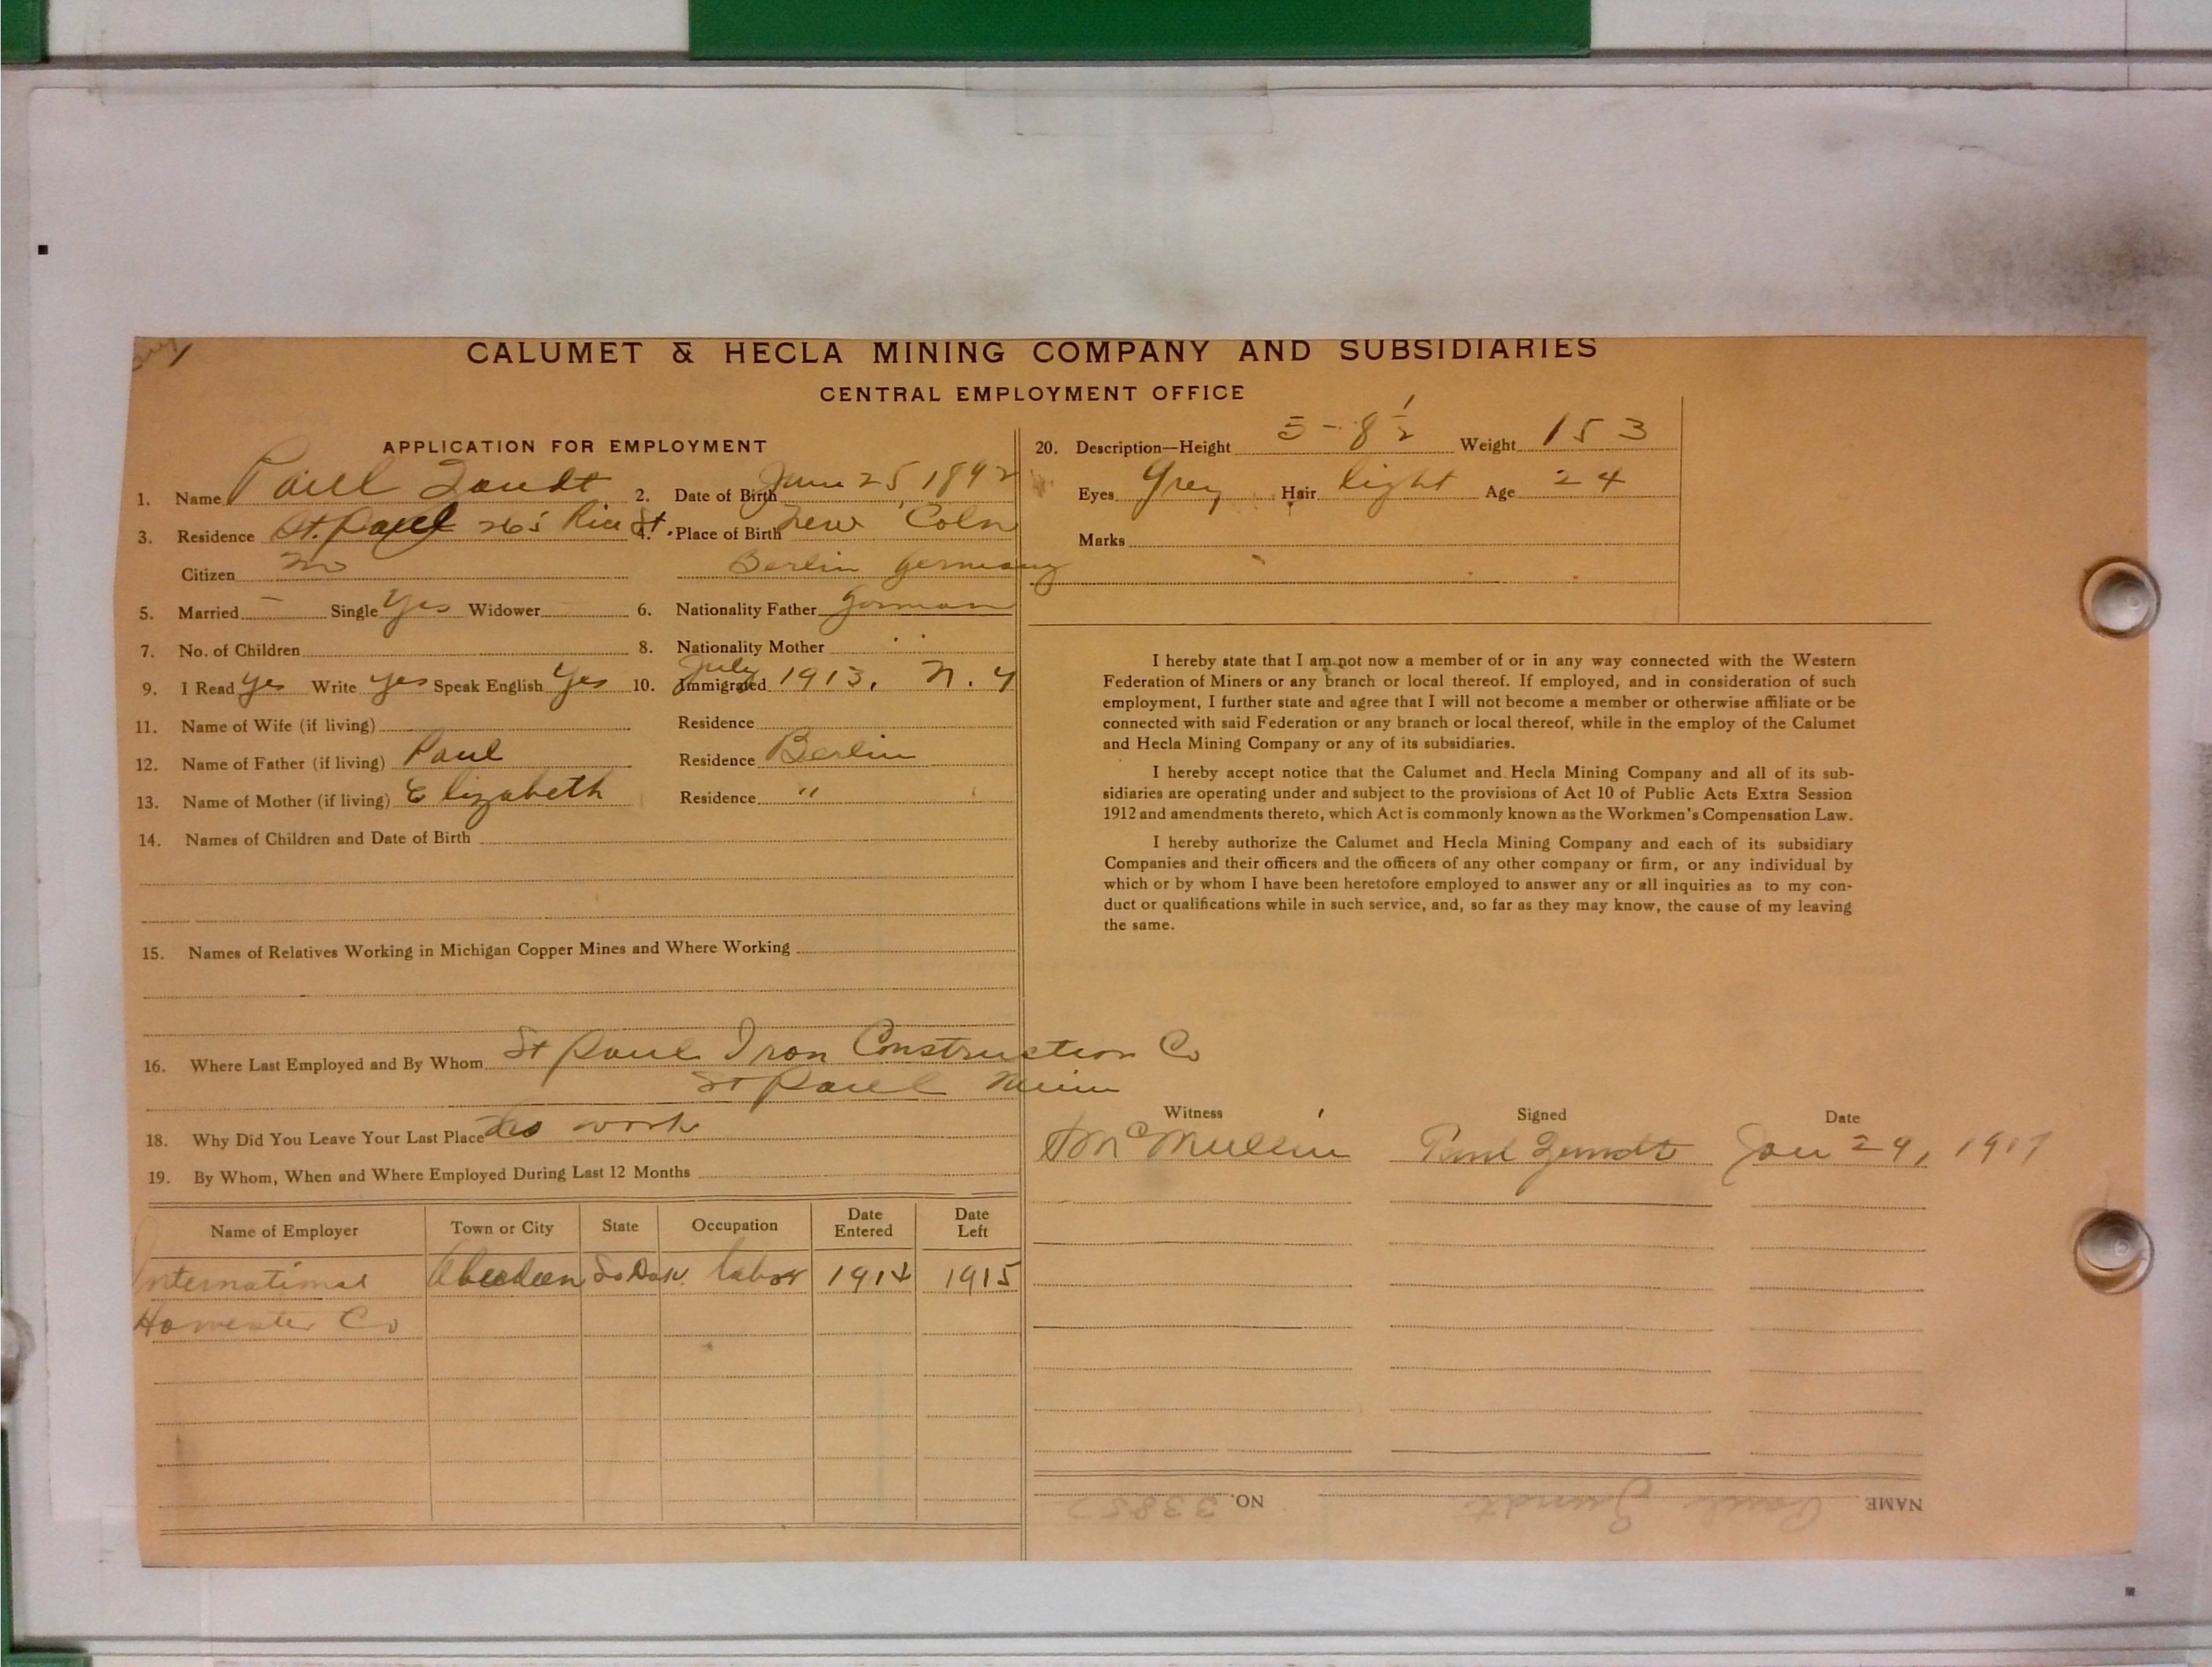 CALUMET & HECLA MINING COMPANY AND SUBSIDIARIES
CENTRAL EMPLOYMENT OFFICE
APPLICATION FOR EMPLOYMENT
1. Name Paul 2. Date of Birth June 25, 1892
3. Residence St. Paul 265 Rice St. 4. Place of Birth New Coln
Citizen no Berlin Germany
5. Married — Single Yes Widower 6. Nationality Father German
7. No. of Children 8. Nationality Mother " "
9. I Read Yes Write Yes Speak English Yes 10. Immigrated July 1913, N.Y
11. Name of Wife (if living) Residence
12. Name of Father (if living) Paul Residence Berlin
13. Name of Mother (if living) Elizabeth Residence "
14. Names of Children and Date of Birth
15. Names of Relatives Working in Michigan Copper Mines and Where Working
16. Where Last Employed and By Whom St Paul Iron Construction Co
St Paul Minn
18. Why Did You Leave Your Last Place work
19. By Whom, When and Where Employed During Last 12 Months
Name of Employer Town or City State Occupation Date Entered Date Left
International Aberdeen So Dak. labor 1914 1915
Harvester Co
20. Description—Height 5-8½ Weight 153
Eyes Grey Hair light Age 24
Marks
I hereby state that I am not now a member of or in any way connected with the Western
Federation of Miners or any branch or local thereof. If employed, and in consideration of such
employment, I further state and agree that I will not become a member or otherwise affiliate or be
connected with said Federation or any branch or local thereof, while in the employ of the Calumet
and Hecla Mining Company or any of its subsidiaries.
I hereby accept notice that the Calumet and Hecla Mining Company and all of its sub-
sidiaries are operating under and subject to the provisions of Act 10 of Public Acts Extra Session
1912 and amendments thereto, which Act is commonly known as the Workmen's Compensation Law.
I hereby authorize the Calumet and Hecla Mining Company and each of its subsidiary
Companies and their officers and the officers of any other company or firm, or any individual by
which or by whom I have been heretofore employed to answer any or all inquiries as to my con-
duct or qualifications while in such service, and, so far as they may know, the cause of my leaving
the same.
Witness Signed Date
McMullin Paul Zundt Jan 29, 1917
NAME Paul Zundt NO. 33852